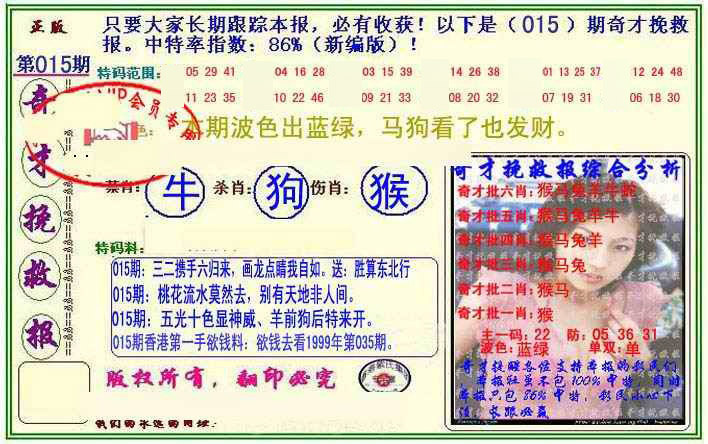 正版
只要大家长期跟踪本报，必有收获！以下是（015）期奇才挽救
报。中特率指数：86%（新编版）！
第015期
特码范围：
05 29 41 04 16 28 03 15 39 14 26 38 01 13 25 37 12 24 48
11 23 35 10 22 46 09 21 33 08 20 32 07 19 31 06 18 30
奇才挽救报
VIP会员专
色：本期波色出蓝绿，马狗看了也发财。
禁肖：牛 杀肖：狗 伤肖：猴
特码料：
015期：三二携手六归来，画龙点睛我自如。送：胜算东北行
015期：桃花流水莫然去，别有天地非人间。
015期：五光十色显神威、羊前狗后特来开。
015期香港第一手欲钱料：欲钱去看1999年第035期。
版权所有，翻印必究
我们的永远的网址：
奇才挽救报综合分析
奇才批六肖：猴马兔羊牛蛇
奇才批五肖：猴马兔羊牛
奇才批四肖：猴马兔羊
奇才批三肖：猴马兔
奇才批二肖：猴马
奇才批一肖：猴
主一码：22 防：05 36 31
波色：蓝绿 单双：单
奇才提醒各位支持本报的彩民们
，本报担虽不包100%中特，同时
本报只包86%中特，彩民小心下
注，长跟必赢